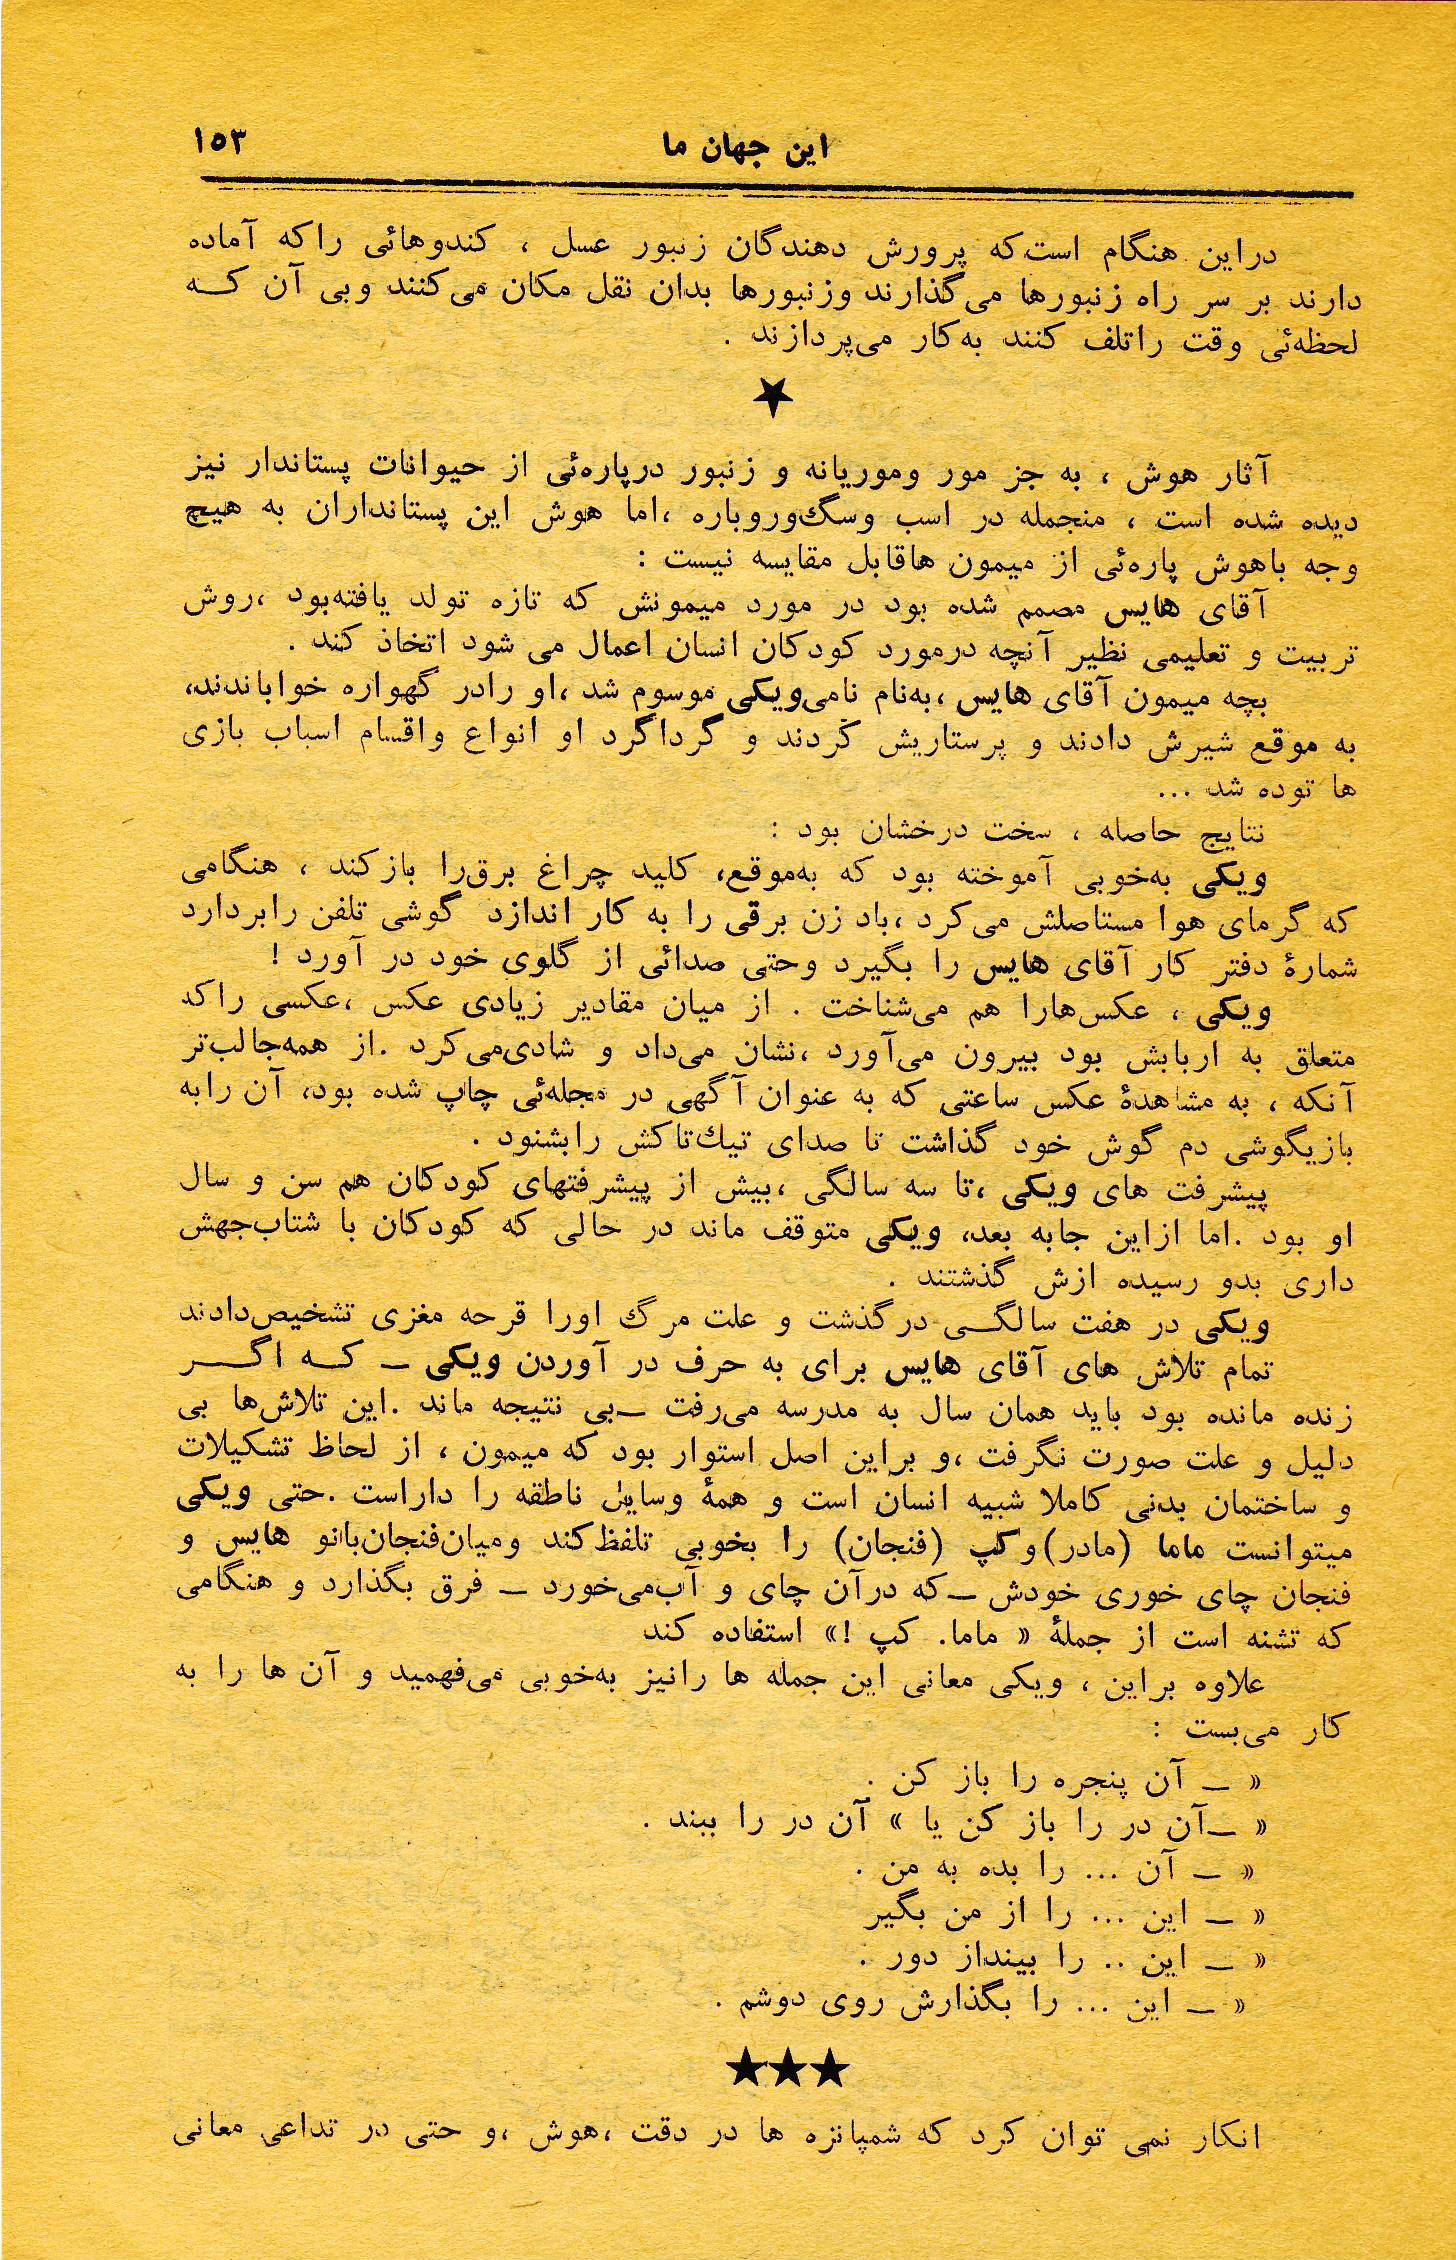 این جهان ما
۱۵۳
دراین هنگام است‌که پرورش دهندگان زنبور عسل ، کندوهائی راکه آماده
دارند بر سر راه زنبورها می‌گذارند وزنبورها بدان نقل مکان می‌کنند وبی آن کــه
لحظه‌ئی وقت راتلف کنند به‌کار می‌پردازند .
★
آثار هوش ، به جز مور وموریانه و زنبور درپاره‌ئی از حیوانات پستاندار نیز
دیده شده است ، منجمله در اسب وسگ‌وروباره ،اما هوش این پستانداران به هیچ
وجه باهوش پاره‌ئی از میمون هاقابل مقایسه نیست :
آقای هایس مصمم شده بود در مورد میمونش که تازه تولد یافته‌بود ،روش
تربیت و تعلیمی نظیر آنچه درمورد کودکان انسان اعمال می شود اتخاذ کند .
بچه میمون آقای هایس ،به‌نام نامی‌ویکی موسوم شد ،او رادر گهواره خواباندند،
به موقع شیرش دادند و پرستاریش کردند و گرداگرد او انواع واقسام اسباب بازی
ها توده شد ...
نتایج حاصله ، سخت درخشان بود :
ویکی به‌خوبی آموخته بود که به‌موقع، کلید چراغ برق‌را بازکند ، هنگامی
که گرمای هوا مستاصلش می‌کرد ،باد زن برقی را به کار اندازد گوشی تلفن رابردارد
شمارهٔ دفتر کار آقای هایس را بگیرد وحتی صدائی از گلوی خود در آورد !
ویکی ، عکس‌هارا هم می‌شناخت . از میان مقادیر زیادی عکس ،عکسی راکه
متعلق به اربابش بود بیرون می‌آورد ،نشان می‌داد و شادی‌می‌کرد .از همه‌جالب‌تر
آنکه ، به مشاهدهٔ عکس ساعتی که به عنوان آگهی در مجله‌ئی چاپ شده بود، آن رابه
بازیگوشی دم گوش خود گذاشت تا صدای تیك‌تاکش رابشنود .
پیشرفت های ویکی ،تا سه سالگی ،بیش از پیشرفتهای کودکان هم سن و سال
او بود .اما ازاین جابه بعد، ویکی متوقف ماند در حالی که کودکان با شتاب‌جهش
داری بدو رسیده ازش گذشتند .
ویکی در هفت سالگــی درگذشت و علت مرگ اورا قرحه مغزی تشخیص‌دادند
تمام تلاش های آقای هایس برای به حرف در آوردن ویکی ــ کــه اگــر
زنده مانده بود باید همان سال به مدرسه می‌رفت ــبی نتیجه ماند .این تلاش‌ها بی
دلیل و علت صورت نگرفت ،و براین اصل استوار بود که میمون ، از لحاظ تشکیلات
و ساختمان بدنی کاملا شبیه انسان است و همهٔ وسایل ناطقه را داراست .حتی ویکی
میتوانست ماما (مادر)وکپ (فنجان) را بخوبی تلفظ‌کند ومیان‌فنجان‌بانو هایس و
فنجان چای خوری خودش ــ‌که درآن چای و آب‌می‌خورد ــ فرق بگذارد و هنگامی
که تشنه است از جملهٔ « ماما. کپ !» استفاده کند
علاوه براین ، ویکی معانی این جمله ها رانیز به‌خوبی می‌فهمید و آن ها را به
کار می‌بست :
« ــ آن پنجره را باز کن .
« ــآن در را باز کن یا » آن در را ببند .
« ــ آن ... را بده به من .
« ــ این ... را از من بگیر
« ــ این .. را بینداز دور .
« ــ این ... را بگذارش روی دوشم .
★★★
انکار نمی توان کرد که شمپانزه ها در دقت ،هوش ،و حتی در تداعی معانی